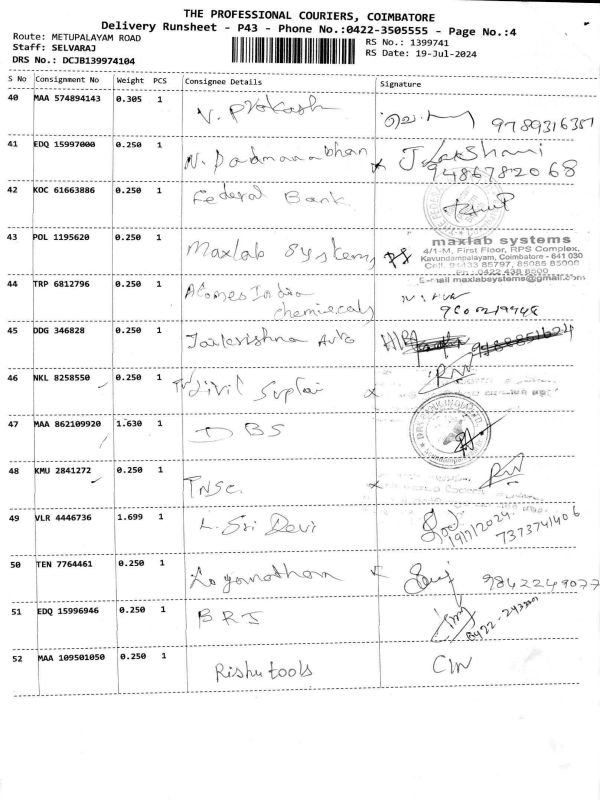 THE PROFESSIONAL COURIERS, COIMBATORE
Delivery Runsheet - P43 - Phone No.:0422-3505555 - Page No.:4
Route: METUPALAYAM ROAD
Staff: SELVARAJ
DRS No.: DCJB139974104
RS No.: 1399741
RS Date: 19-Jul-2024
S No Consignment No Weight PCS Consignee Details Signature
40 MAA 574894143 0.305 1 V. Prakash 9789316357
41 EDQ 15997000 0.250 1 N. Padmanabhan J. Lakshami
9486782068
42 KOC 61663886 0.250 1 Federal Bank
43 POL 1195620 0.250 1 Maxlab Systems
maxlab systems
4/1-M, First Floor, RPS Complex,
Kavundampalayam, Coimbatore - 641 030
85085 85000
Ph : 0422 438 8500
E-mail maxlabsystems@gmail.com
44 TRP 6812796 0.250 1 India
chemiecals
45 DDG 346828 0.250 1 Auto
46 NKL 8258550 0.250 1 Civil
47 MAA 862109920 1.630 1 DBS
48 KMU 2841272 0.250 1 TNSC
49 VLR 4446736 1.699 1 L. Sri Devi
19/7/2024
7373741406
50 TEN 7764461 0.250 1 9842249077
51 EDQ 15996946 0.250 1 BRJ
52 MAA 109501050 0.250 1 Rishu tools